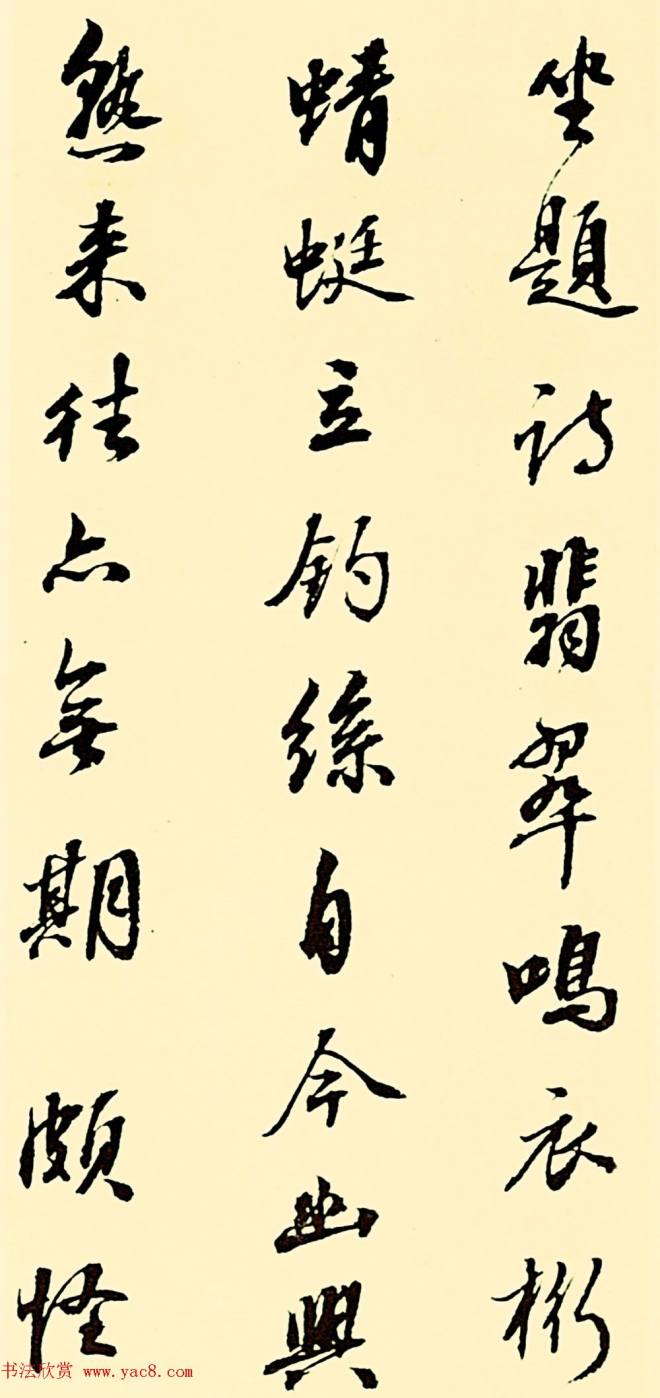 坐題詩翡翠鳴衣桁
蜻蜓立釣絲自今幽興
熟來往亦無期 頗怪
书法欣赏 www.yac8.com